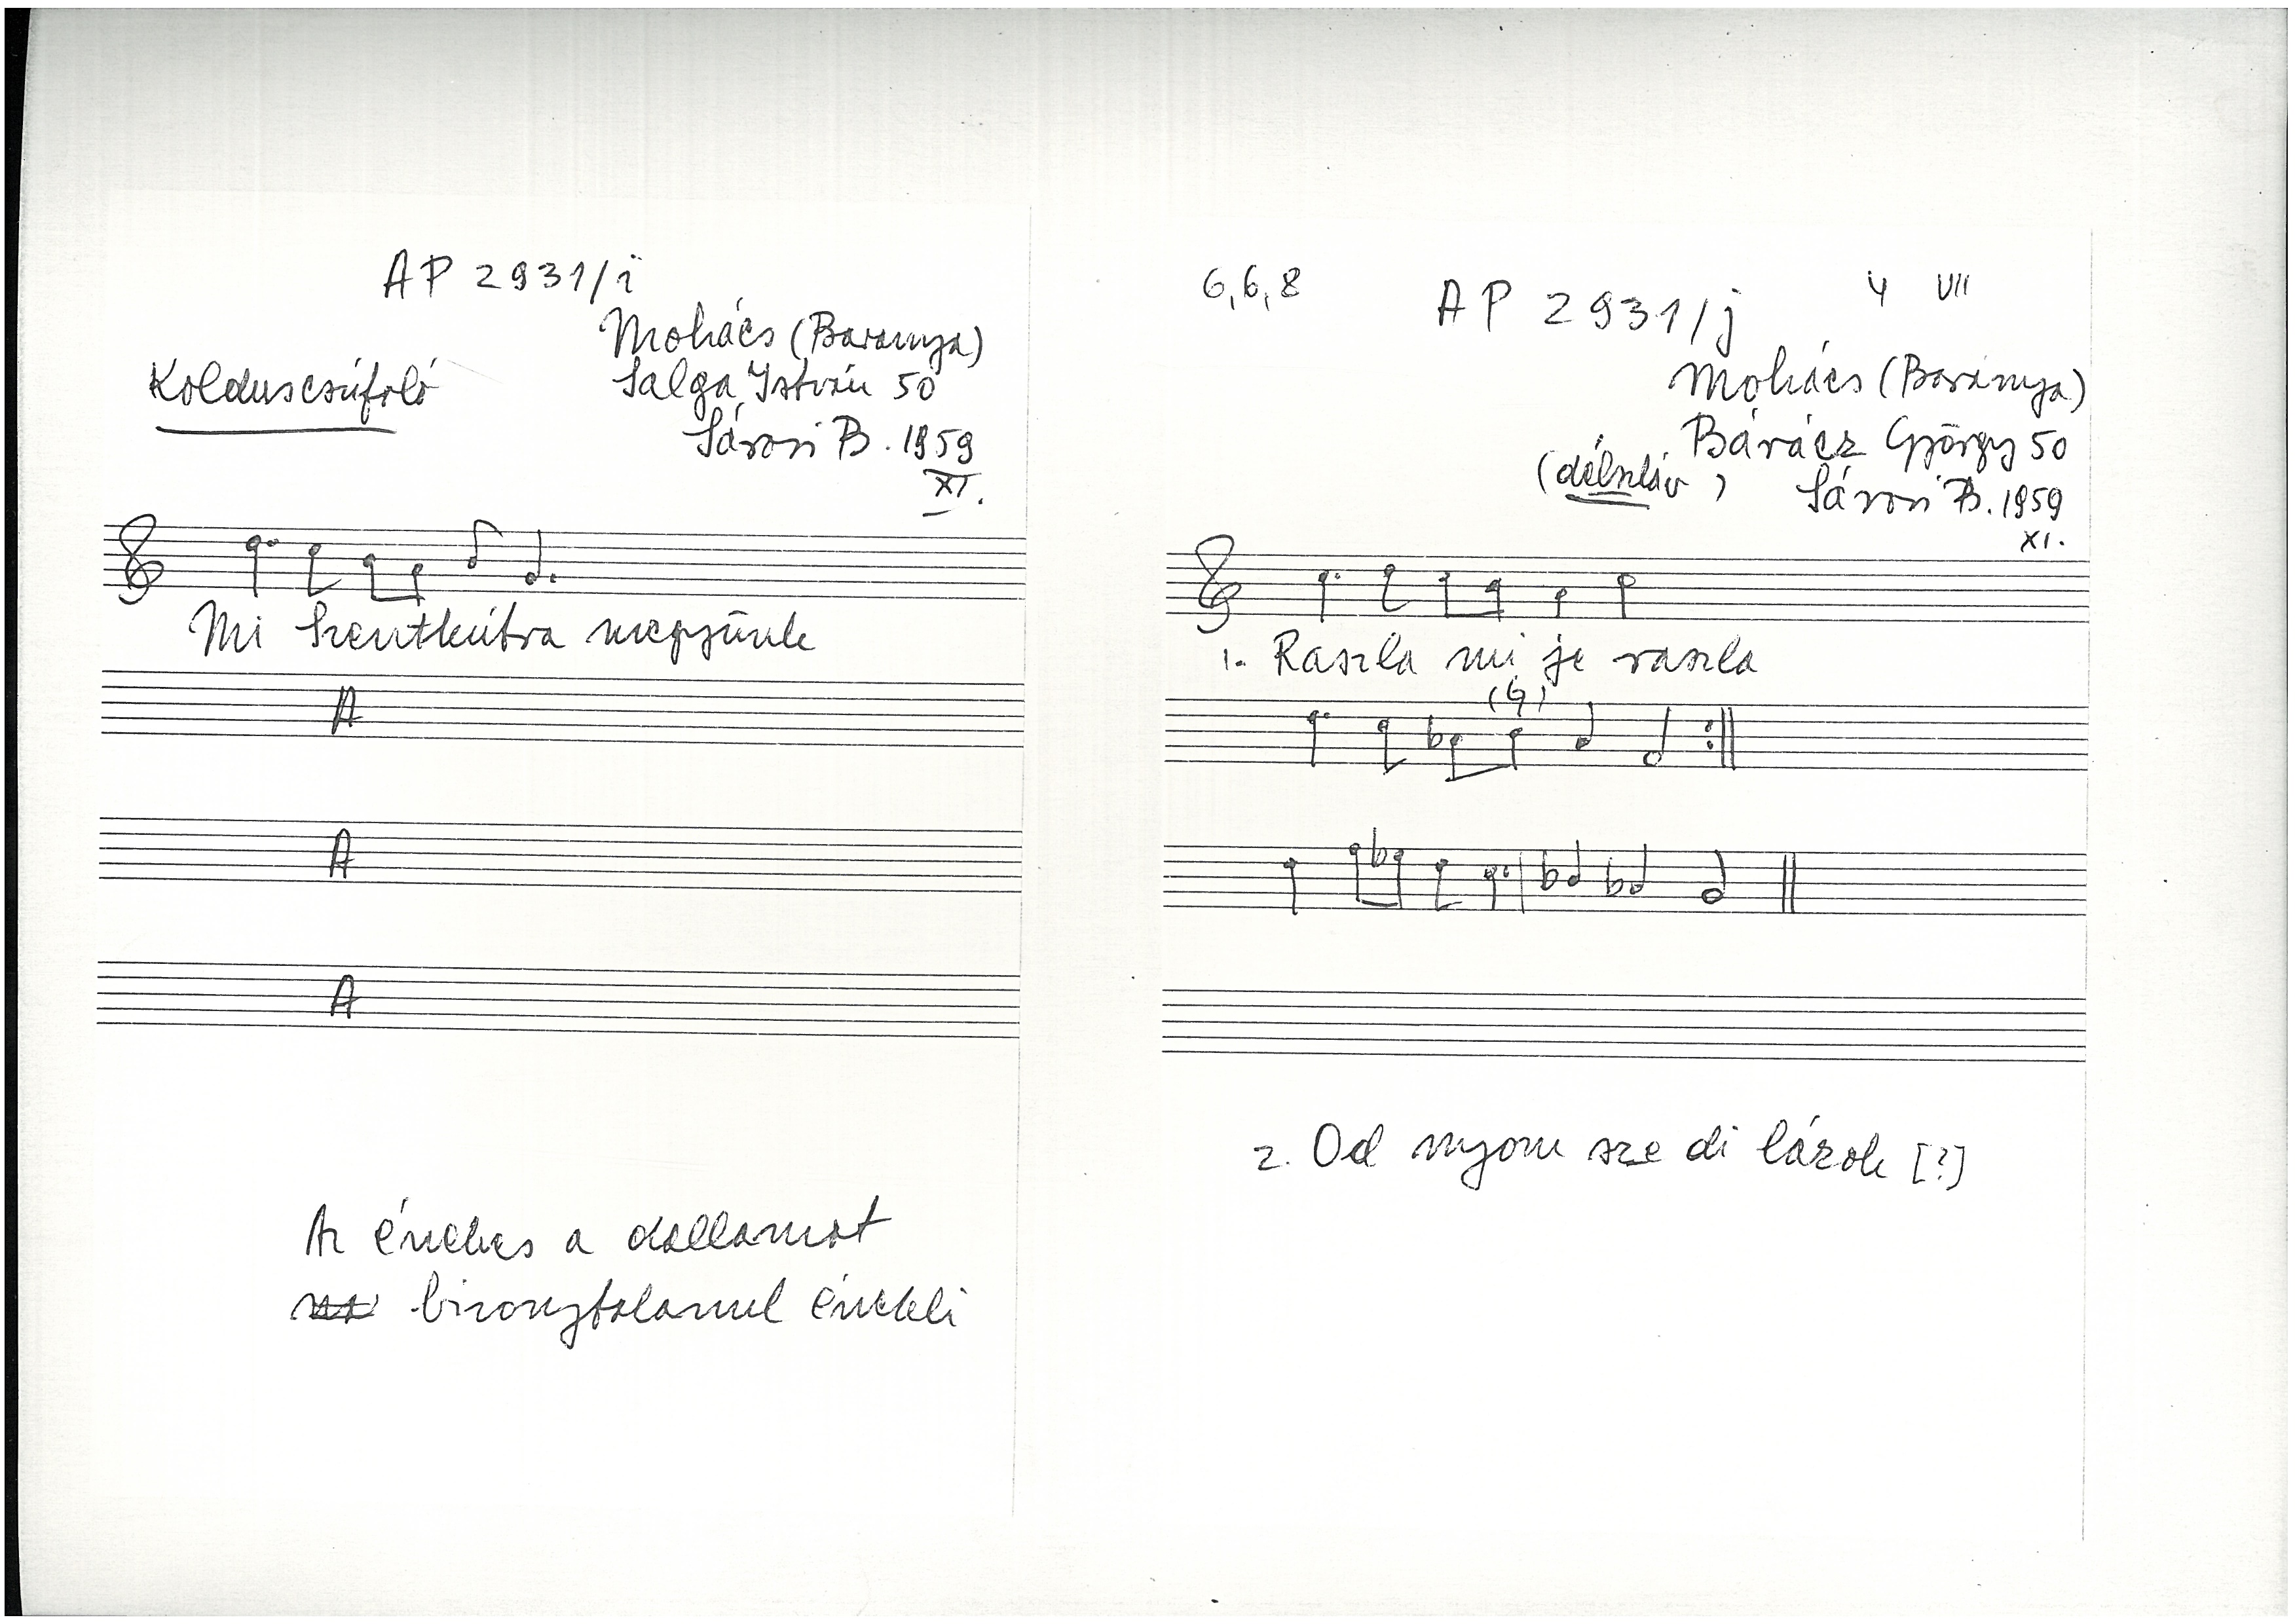 AP 2931/i
Mohács (Baranya)
Kolduscsúfoló
Salga István 50
Sárosi B. 1959
XI.
Mi Szentkútra megyünk
A
A
A
Az énekes a dallamot
bizonytalanul énekli
6,6,8
AP 2931/j
4 VII
Mohács (Baranya)
Bárácz György 50
(délszláv)
Sárosi B. 1959
XI.
1. Raszla mi je raszla
2. Od nyom sze di lázok [?]